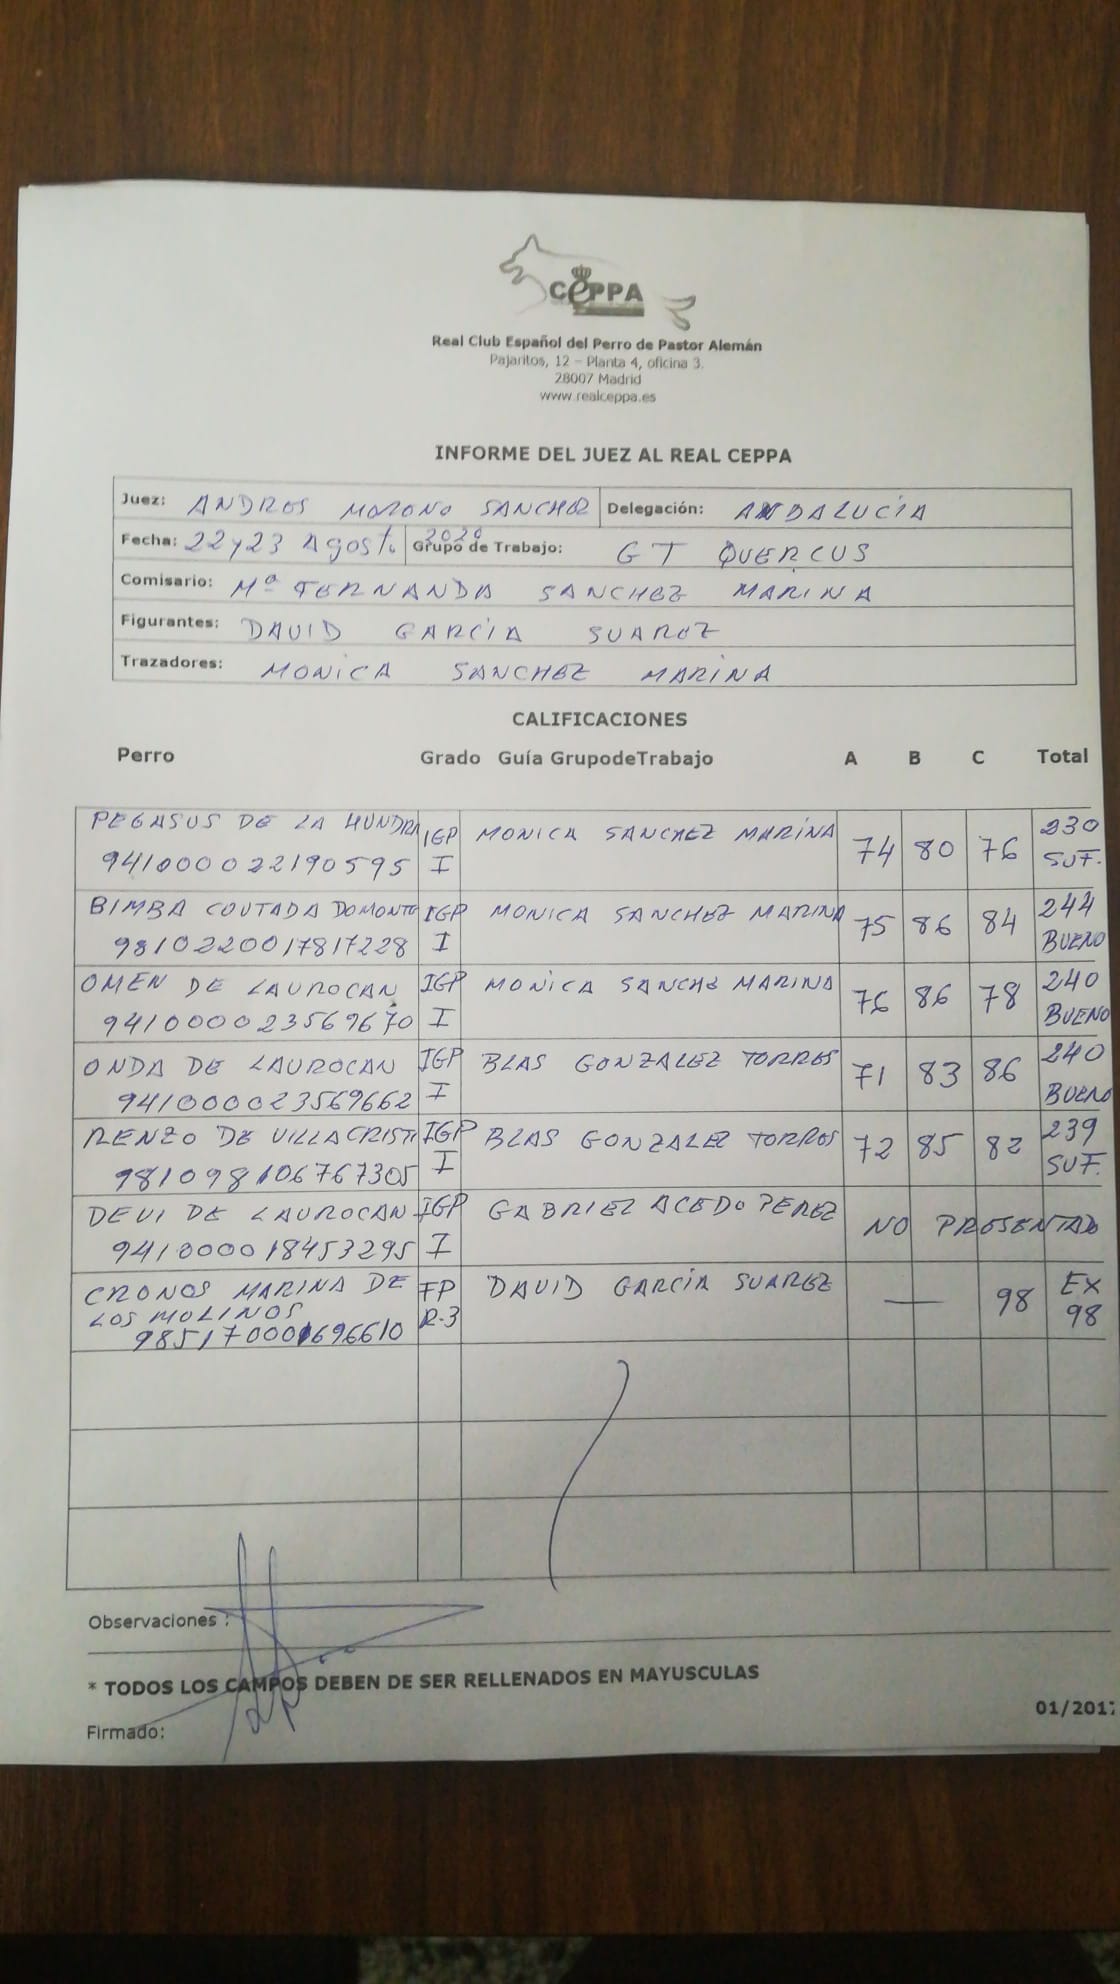 CEPPA
Real Club Español del Perro de Pastor Alemán
Pajaritos, 12 – Planta 4, oficina 3.
28007 Madrid
www.realceppa.es
INFORME DEL JUEZ AL REAL CEPPA
Juez: ANDRES MORENO SANCHEZ Delegación: ANDALUCÍA
Fecha: 22 y 23 Agosto 2020 Grupo de Trabajo: GT QUERCUS
Comisario: Mª FERNANDA SANCHEZ MARINA
Figurantes: DAVID GARCÍA SUAREZ
Trazadores: MONICA SANCHEZ MARINA
CALIFICACIONES
Perro Grado Guía GrupodeTrabajo A B C Total
PEGASUS DE LA HUNDRA IGP MONICA SANCHEZ MARINA 74 80 76 230
941000022190595 I SUF.
BIMBA COUTADA DOMONTE IGP MONICA SANCHEZ MARINA 75 86 84 244
9810220017817228 I BUENO
OMEN DE LAUROCAN IGP MONICA SANCHE MARINA 76 86 78 240
941000023569670 I BUENO
ONDA DE LAUROCAN IGP BLAS GONZALEZ TORRES 71 83 86 240
941000023569662 I BUENO
RENZO DE VILLACRISTI IGP BLAS GONZALEZ TORRES 72 85 82 239
981098106767305 I SUF.
DEVI DE LAUROCAN IGP GABRIEL ACEDO PEREZ NO PRESENTADO
941000018453295 I
CRONOS MARINA DE FP DAVID GARCÍA SUAREZ — 98 EX
LOS MOLINOS R-3 98
985170001696610
Observaciones :
* TODOS LOS CAMPOS DEBEN DE SER RELLENADOS EN MAYUSCULAS
01/2017
Firmado: